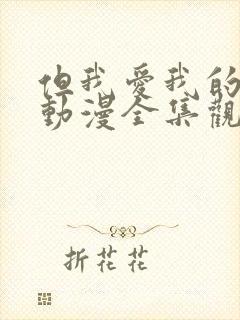 但我愛我的
動漫全集觀
折花花